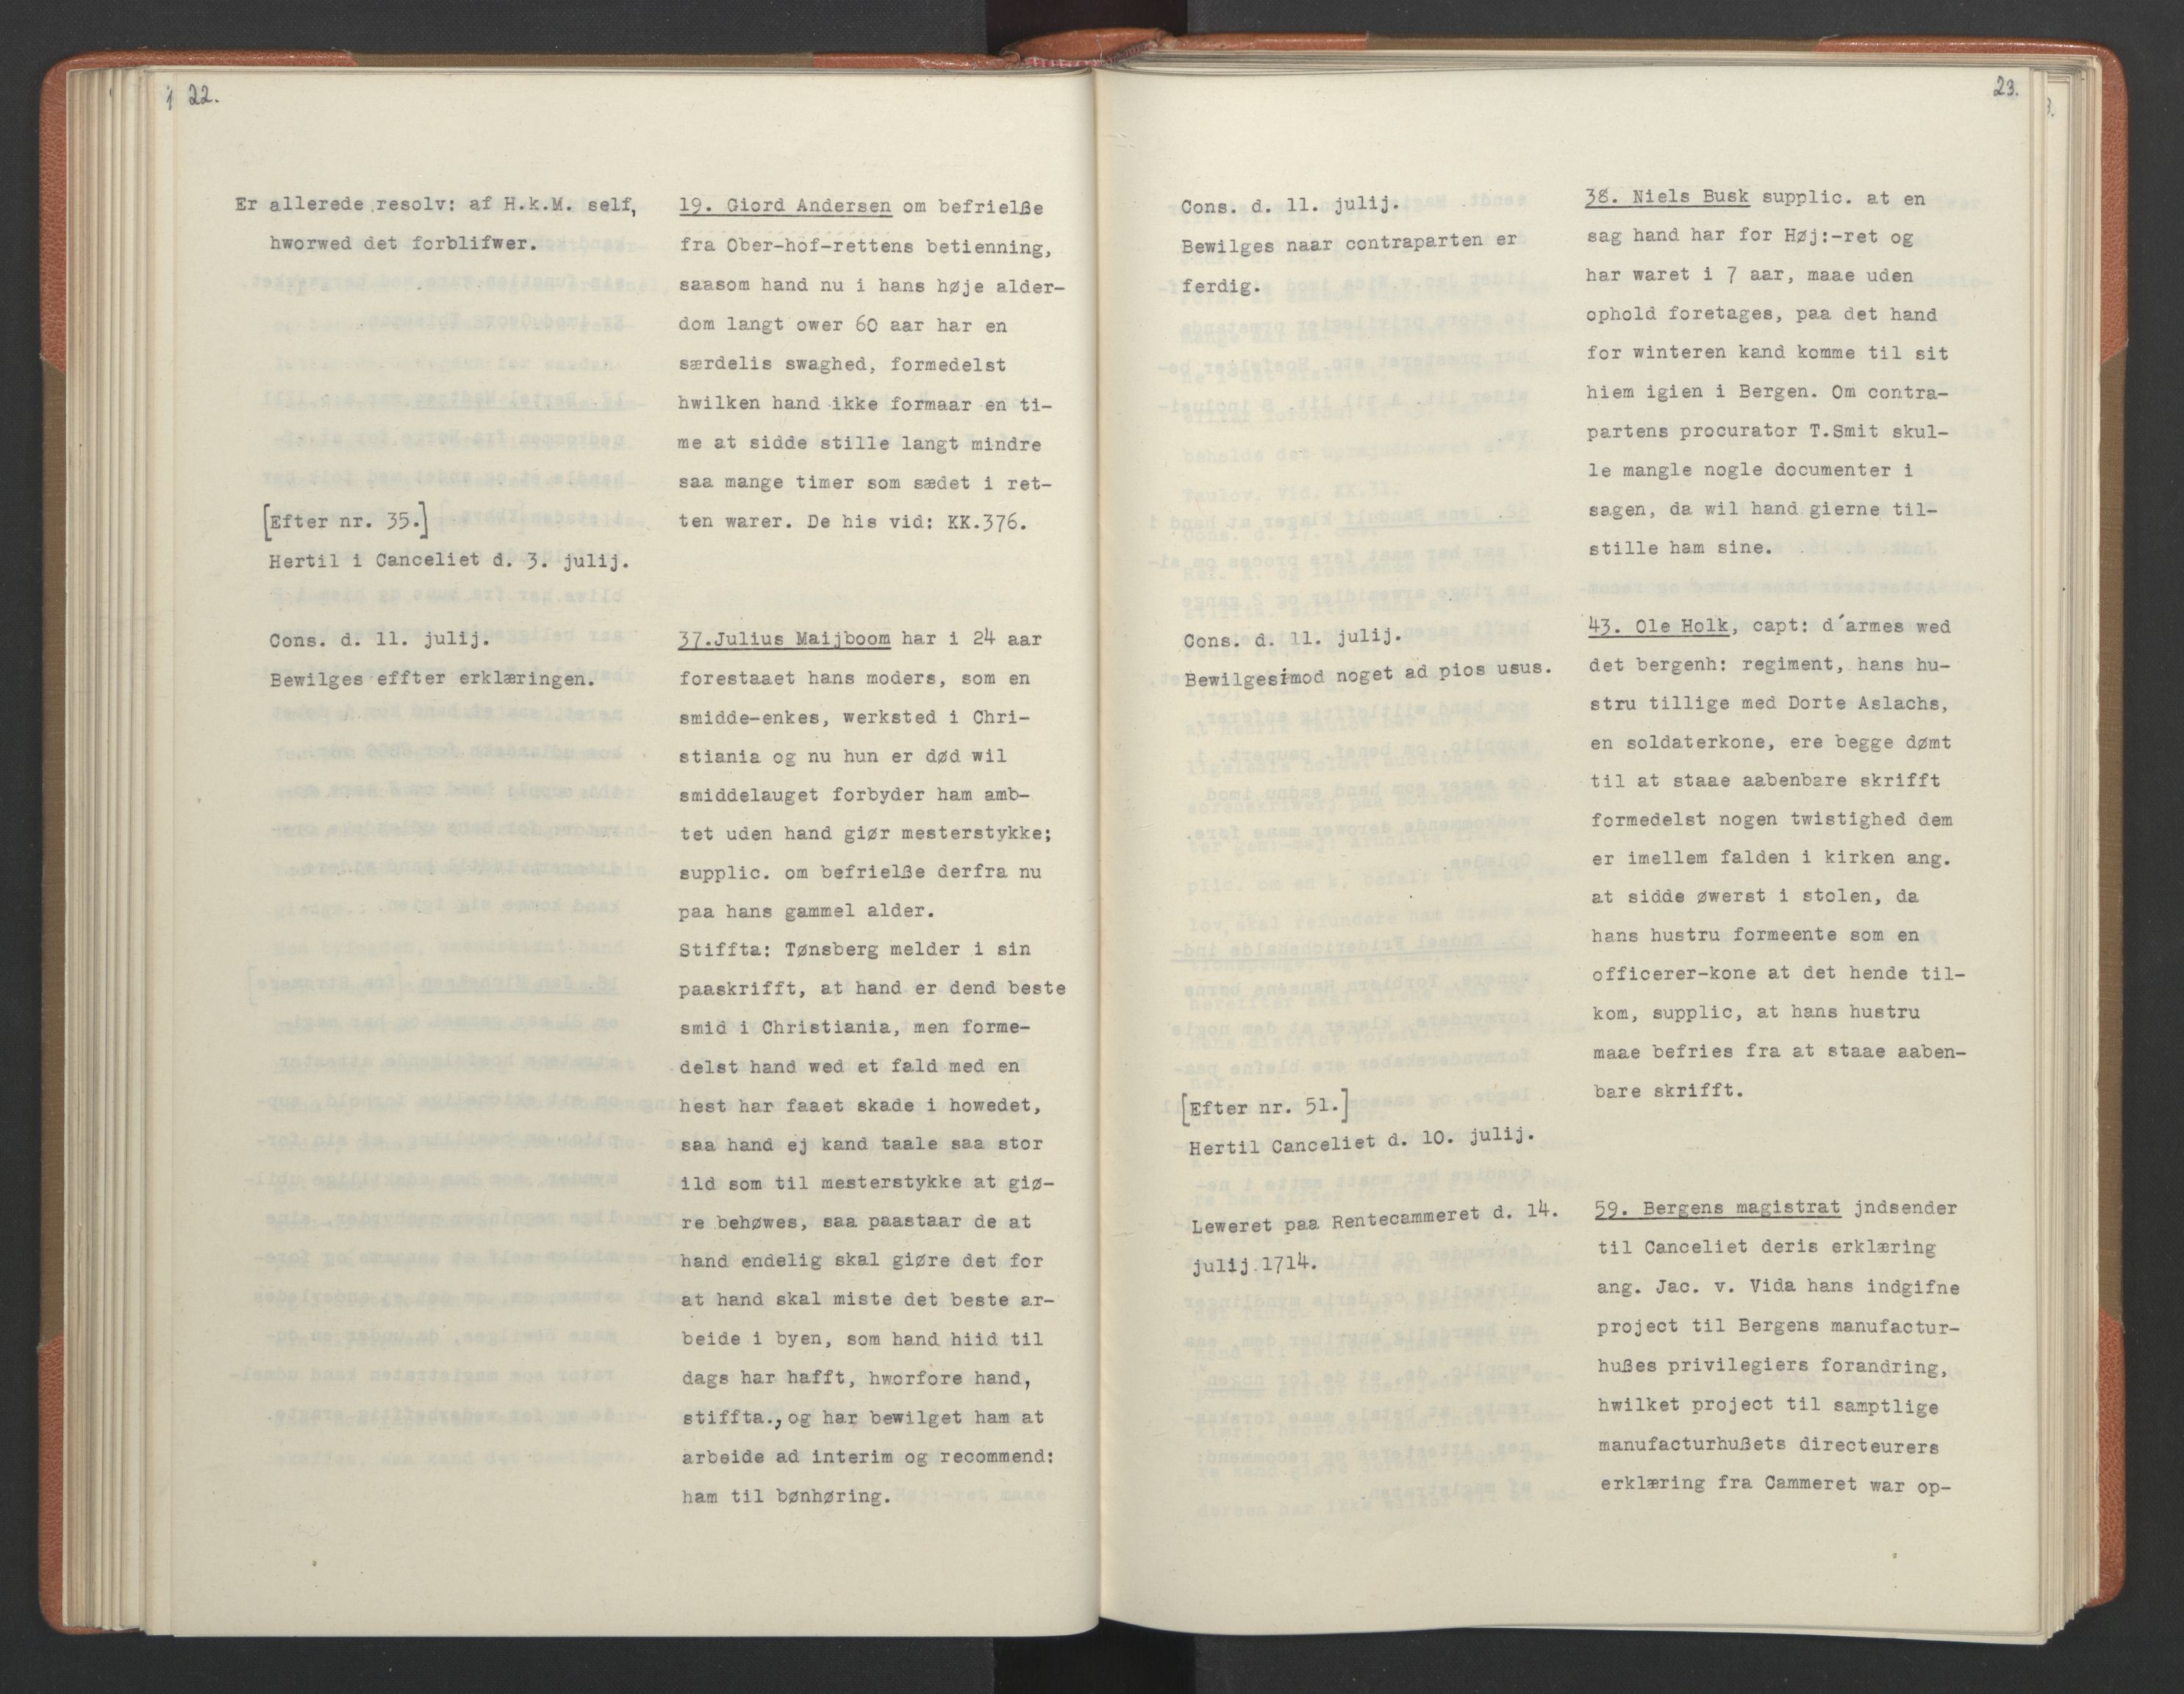 22.
Er allerede resolv: af H.k.M. self,
hworwed det forblifwer.
[Efter nr. 35.]
Hertil i Canceliet d. 3. julij.
Cons. d. 11. julij.
Bewilges effter erklæringen.
19. Giord Andersen om befrielße
fra Ober-hof-rettens betienning,
saasom hand nu i hans høje alder-
dom langt ower 60 aar har en
særdelis swaghed, formedelst
hwilken hand ikke formaar en ti-
me at sidde stille langt mindre
saa mange timer som sædet i ret-
ten warer. De his vid: KK.376.
37.Julius Maijboom har i 24 aar
forestaaet hans moders, som en
smidde-enkes, werksted i Chri-
stiania og nu hun er død wil
smiddelauget forbyder ham amb-
tet uden hand giør mesterstykke;
supplic. om befrielße derfra nu
paa hans gammel alder.
Stiffta: Tønsberg melder i sin
paaskrifft, at hand er dend beste
smid i Christiania, men forme-
delst hand wed et fald med en
hest har faaet skade i howedet,
saa hand ej kand taale saa stor
ild som til mesterstykke at giø-
re behøwes, saa paastaar de at
hand endelig skal giøre det for
at hand skal miste det beste ar-
beide i byen, som hand hiid til
dags har hafft, hworfore hand,
stiffta., og har bewilget ham at
arbeide ad interim og recommend:
ham til bønhøring.
23.
Cons. d. 11. julij.
Bewilges naar contraparten er
ferdig.
Cons. d. 11. julij.
Bewilgesimod noget ad pios usus.
[Efter nr. 51.]
Hertil Canceliet d. 10. julij.
Leweret paa Rentecammeret d. 14.
julij 1714.
38. Niels Busk supplic. at en
sag hand har for Høj:-ret og
har waret i 7 aar, maae uden
ophold foretages, paa det hand
for winteren kand komme til sit
hiem igien i Bergen. Om contra-
partens procurator T.Smit skul-
le mangle nogle documenter i
sagen, da wil hand gierne til-
stille ham sine.
43. Ole Holk, capt: d´armes wed
det bergenh: regiment, hans hu-
stru tillige med Dorte Aslachs,
en soldaterkone, ere begge dømt
til at staae aabenbare skrifft
formedelst nogen twistighed dem
er imellem falden i kirken ang.
at sidde øwerst i stolen, da
hans hustru formeente som en
officerer-kone at det hende til-
kom, supplic, at hans hustru
maae befries fra at staae aaben-
bare skrifft.
59. Bergens magistrat jndsender
til Canceliet deris erklæring
ang. Jac. v. Vida hans indgifne
project til Bergens manufactur-
hußes privilegiers forandring,
hwilket project til samptlige
manufacturhußets directeurers
erklæring fra Cammeret war op-